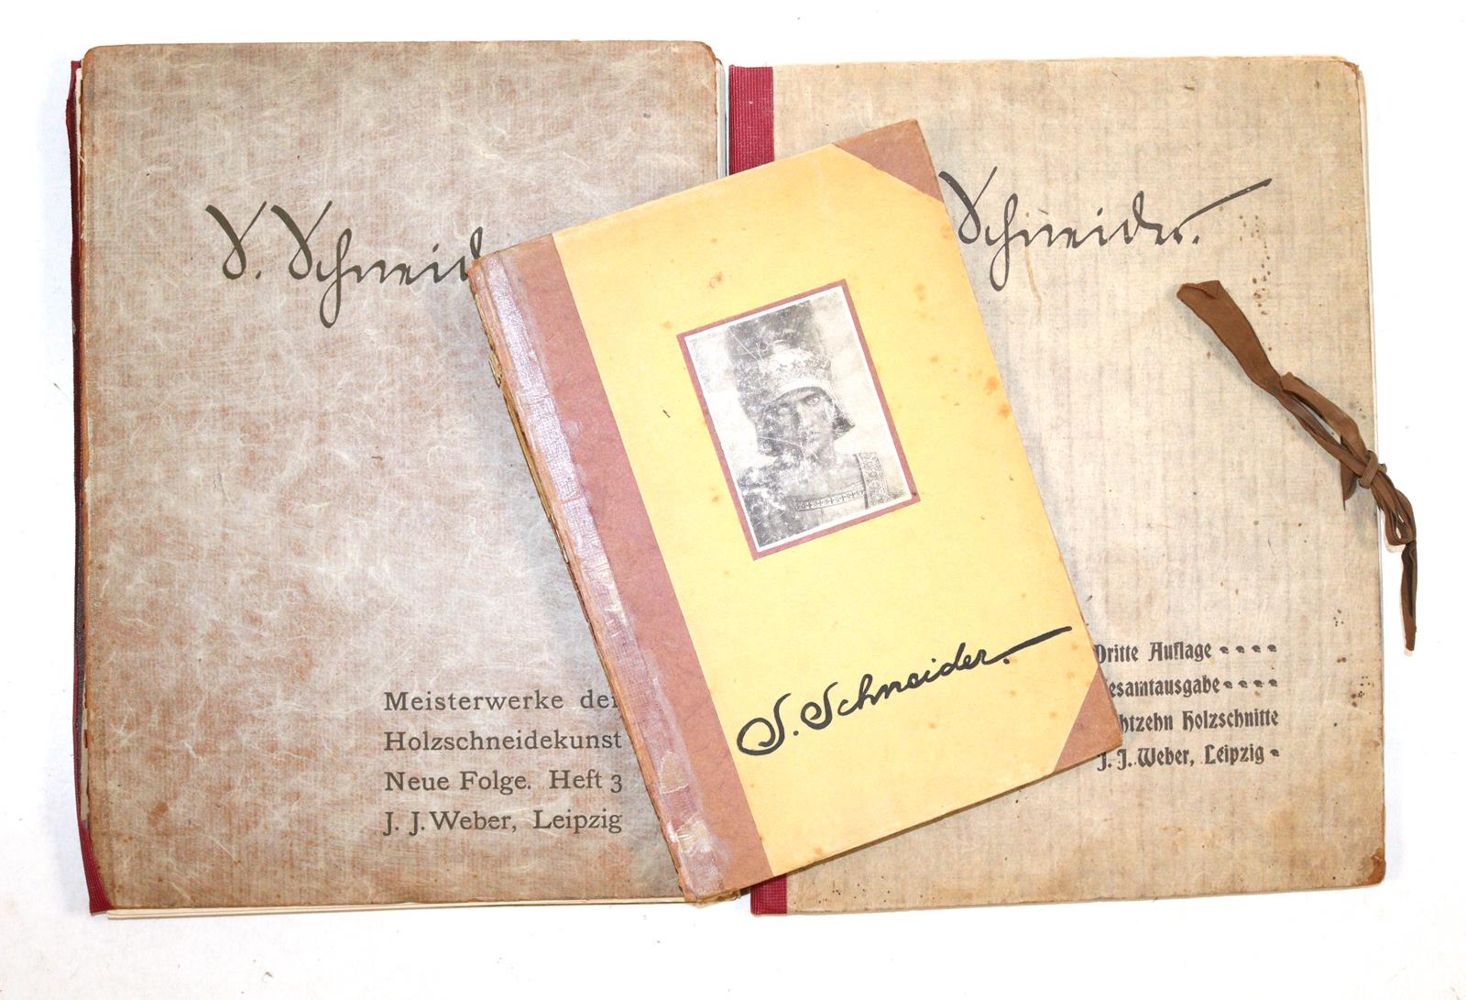 S. Schneid
Meisterwerke der
Holzschneidekunst
Neue Folge. Heft 3
J. J. Weber, Leipzig
S. Schneider.
Schneider.
Dritte Auflage
Gesamtausgabe
htzehn Holzschnitte
J. J. Weber, Leipzig